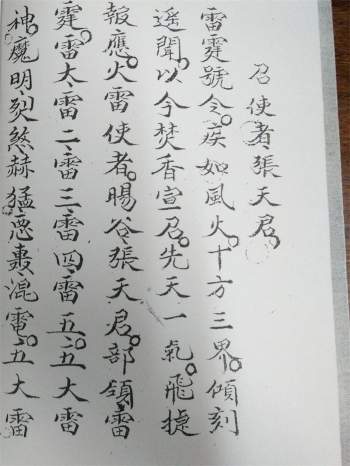 召使者張天君
雷霆號令。疾如風火。十方三界。傾刻
遥聞。以今焚香宣召。先天一氣。飛捷
報應。火雷使者。暘谷張天君。部領雷
霆。雷大雷二雷三雷四雷五。五大雷
神。魔明烈煞赫猛惡轟混電。五大雷